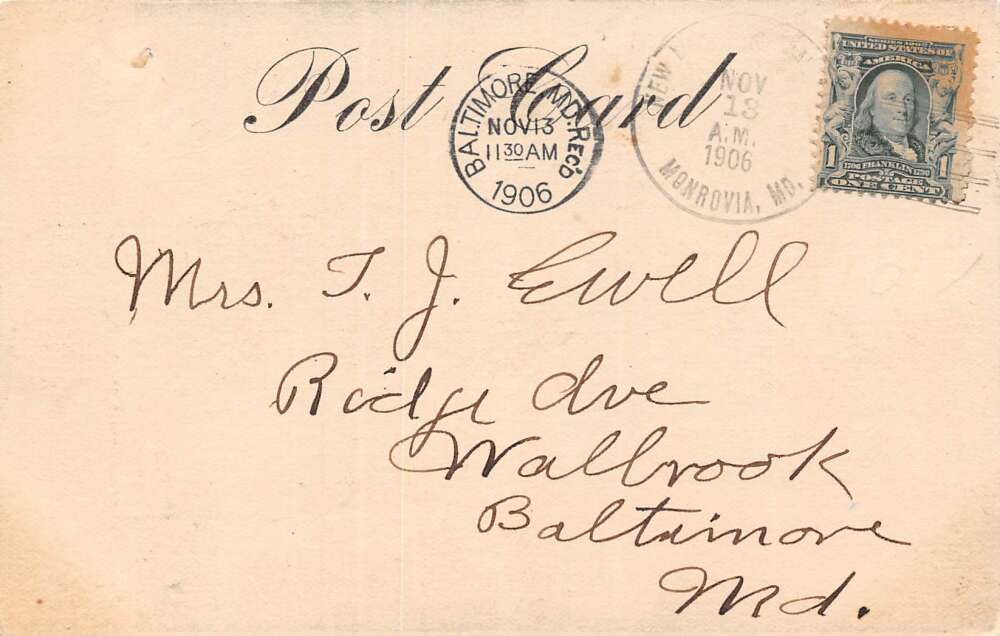 Post Card
BALTIMORE, MD. REC'D
NOV 13
11 30 AM
1906
NEW
NOV
13
A.M.
1906
MONROVIA, MD.
SERIES 1902
UNITED STATES OF
AMERICA
1706 FRANKLIN 1790
1 POSTAGE 1
ONE CENT
Mrs. T. J. Ewell
Ridge Ave
Walbrook
Baltimore
Md.